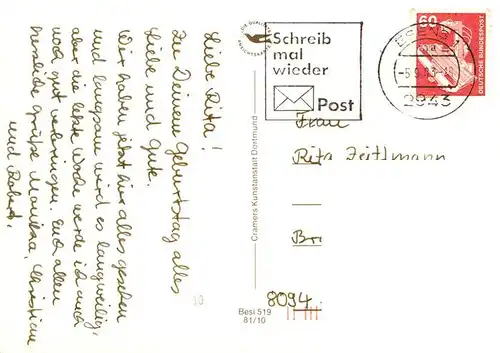 Liebe Rita!
Zu Deinem Geburtstag alles
Liebe und Gute.
Wir haben jetzt hier alles gesehen
und langsam wird es langweilig,
aber die letzte Woche werde ich auch
noch gut verbringen. Euch allen
herzliche Grüße Monika, Christian
und Robert.
Cramers Kunstanstalt Dortmund
Besi 519
81/10
Schreib
mal
wieder
Post
ESENS
-5.9.83-18
2943
60
DEUTSCHE BUNDESPOST
Frau
Rita Zeitlmann
Br
8094